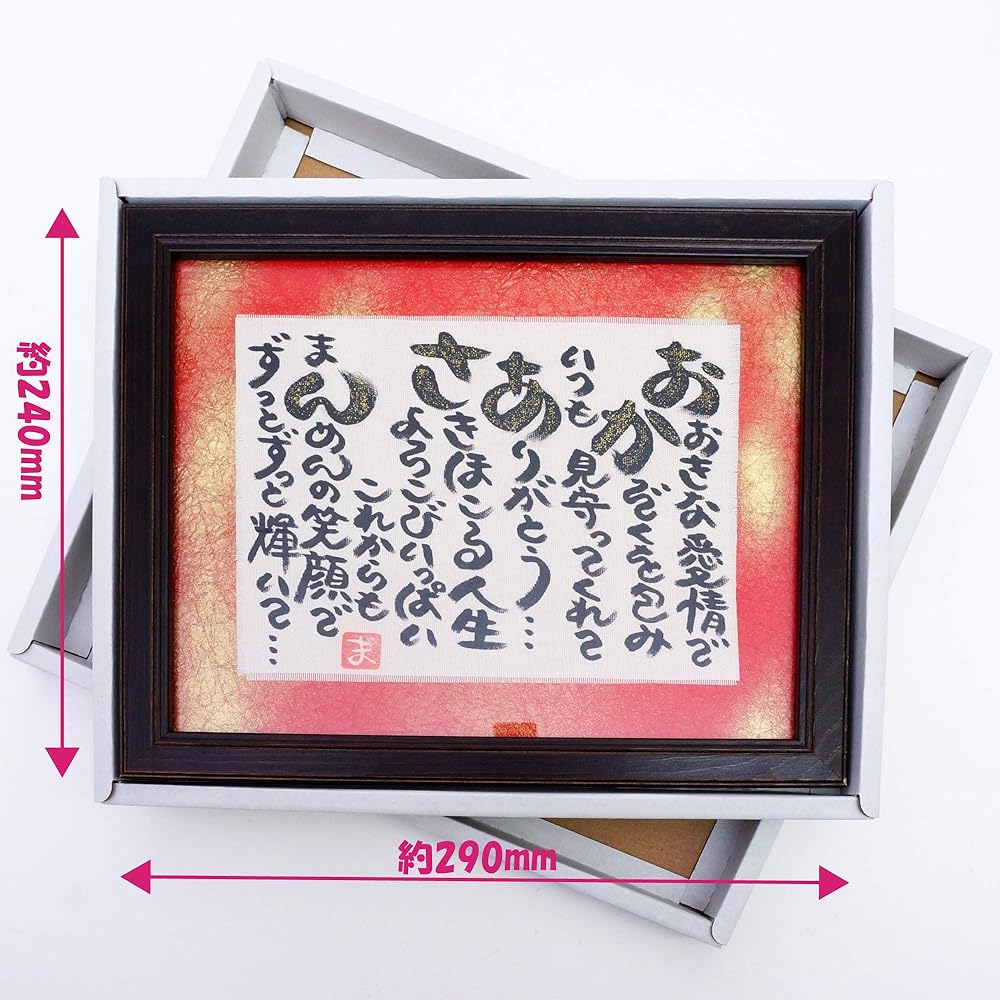 おおきな愛情で
かぞくを包み
いつも見守ってくれて
ありがとう…
さきほこる人生
よろこびいっぱい
これからも
まんめんの笑顔で
ずっとずっと輝いて…
約240mm
約290mm